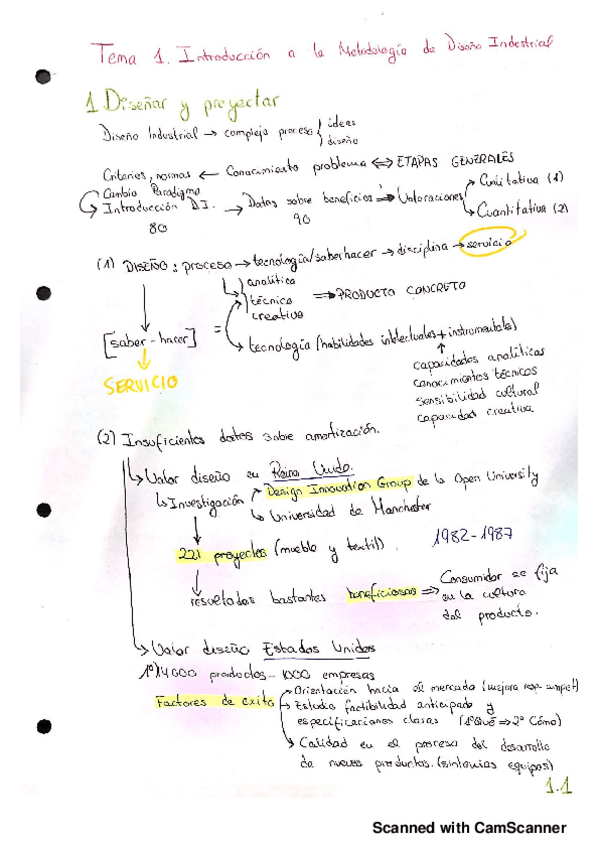 Tema 1. Introducción a la Metodología de Diseño Industrial
1. Diseñar y proyectar
Diseño Industrial → complejo proceso { idees
diseño
Criterios, normas ← Conocimiento problema ⇔ ETAPAS GENERALES
Cambio Paradigma
Introducción D.I. → Datos sobre beneficios ⇒ Valoraciones → Cualitativa (1)
→ Cuantitativa (2)
80 90
(1) DISEÑO: proceso → tecnología/saber hacer → disciplina → servicio
analítica
técnica ⇒ PRODUCTO CONCRETO
creativa
[saber-hacer] = → tecnología (habilidades intelectuales + instrumentales)
SERVICIO
capacidades analíticas
conocimientos técnicos
sensibilidad cultural
capacidad creativa
(2) Insuficientes datos sobre amortización.
Valor diseño en Reino Unido.
Investigación → Design Innovation Group de la Open University
Universidad de Manchester
221 proyectos (mueble y textil). 1982-1987
resueltados bastantes beneficiosos ⇒ Consumidor se fija
en la cultura
del producto.
Valor diseño Estados Unidos
1º) 14000 productos - 1000 empresas
Factores de exito → Orientación hacia el mercado (mejora resp. compet)
→ Estudio factibilidad anticipado y
especificaciones clasas (1º Qué ⇒ 2º Cómo)
→ Calidad en el proceso del desarrollo
de nuevos productos. (sintonias equipos)
1.1
Scanned with CamScanner